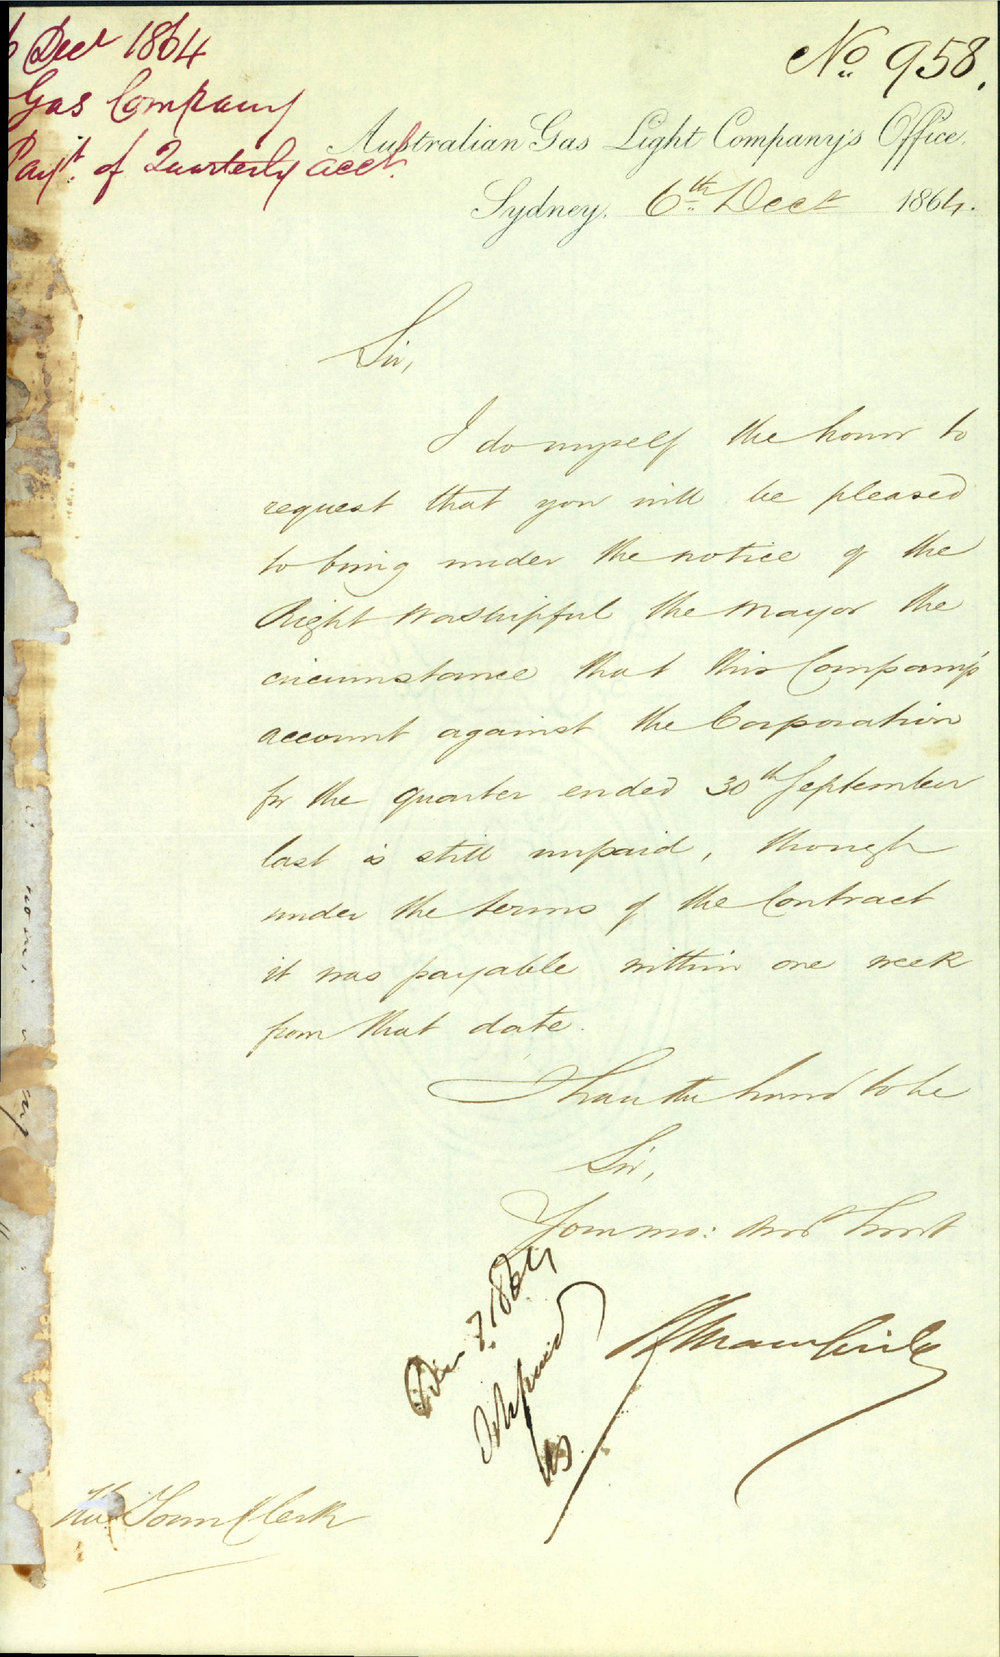 6 Decr 1864
Gas Company
Payt. of Quarterly acct.
No. 958.
Australian Gas Light Company's Office.
Sydney. 6th Decr 1864.
Sir,
I do myself the honor to
request that you will be pleased
to bring under the notice of the
Right Worshipful the Mayor the
circumstance that this Company's
account against the Corporation
for the quarter ended 30th September
last is still unpaid, though
under the terms of the Contract
it was payable within one week
from that date.
I have the honor to be
Sir,
Your mo: obdt Servt
7. 1864
The Town Clerk